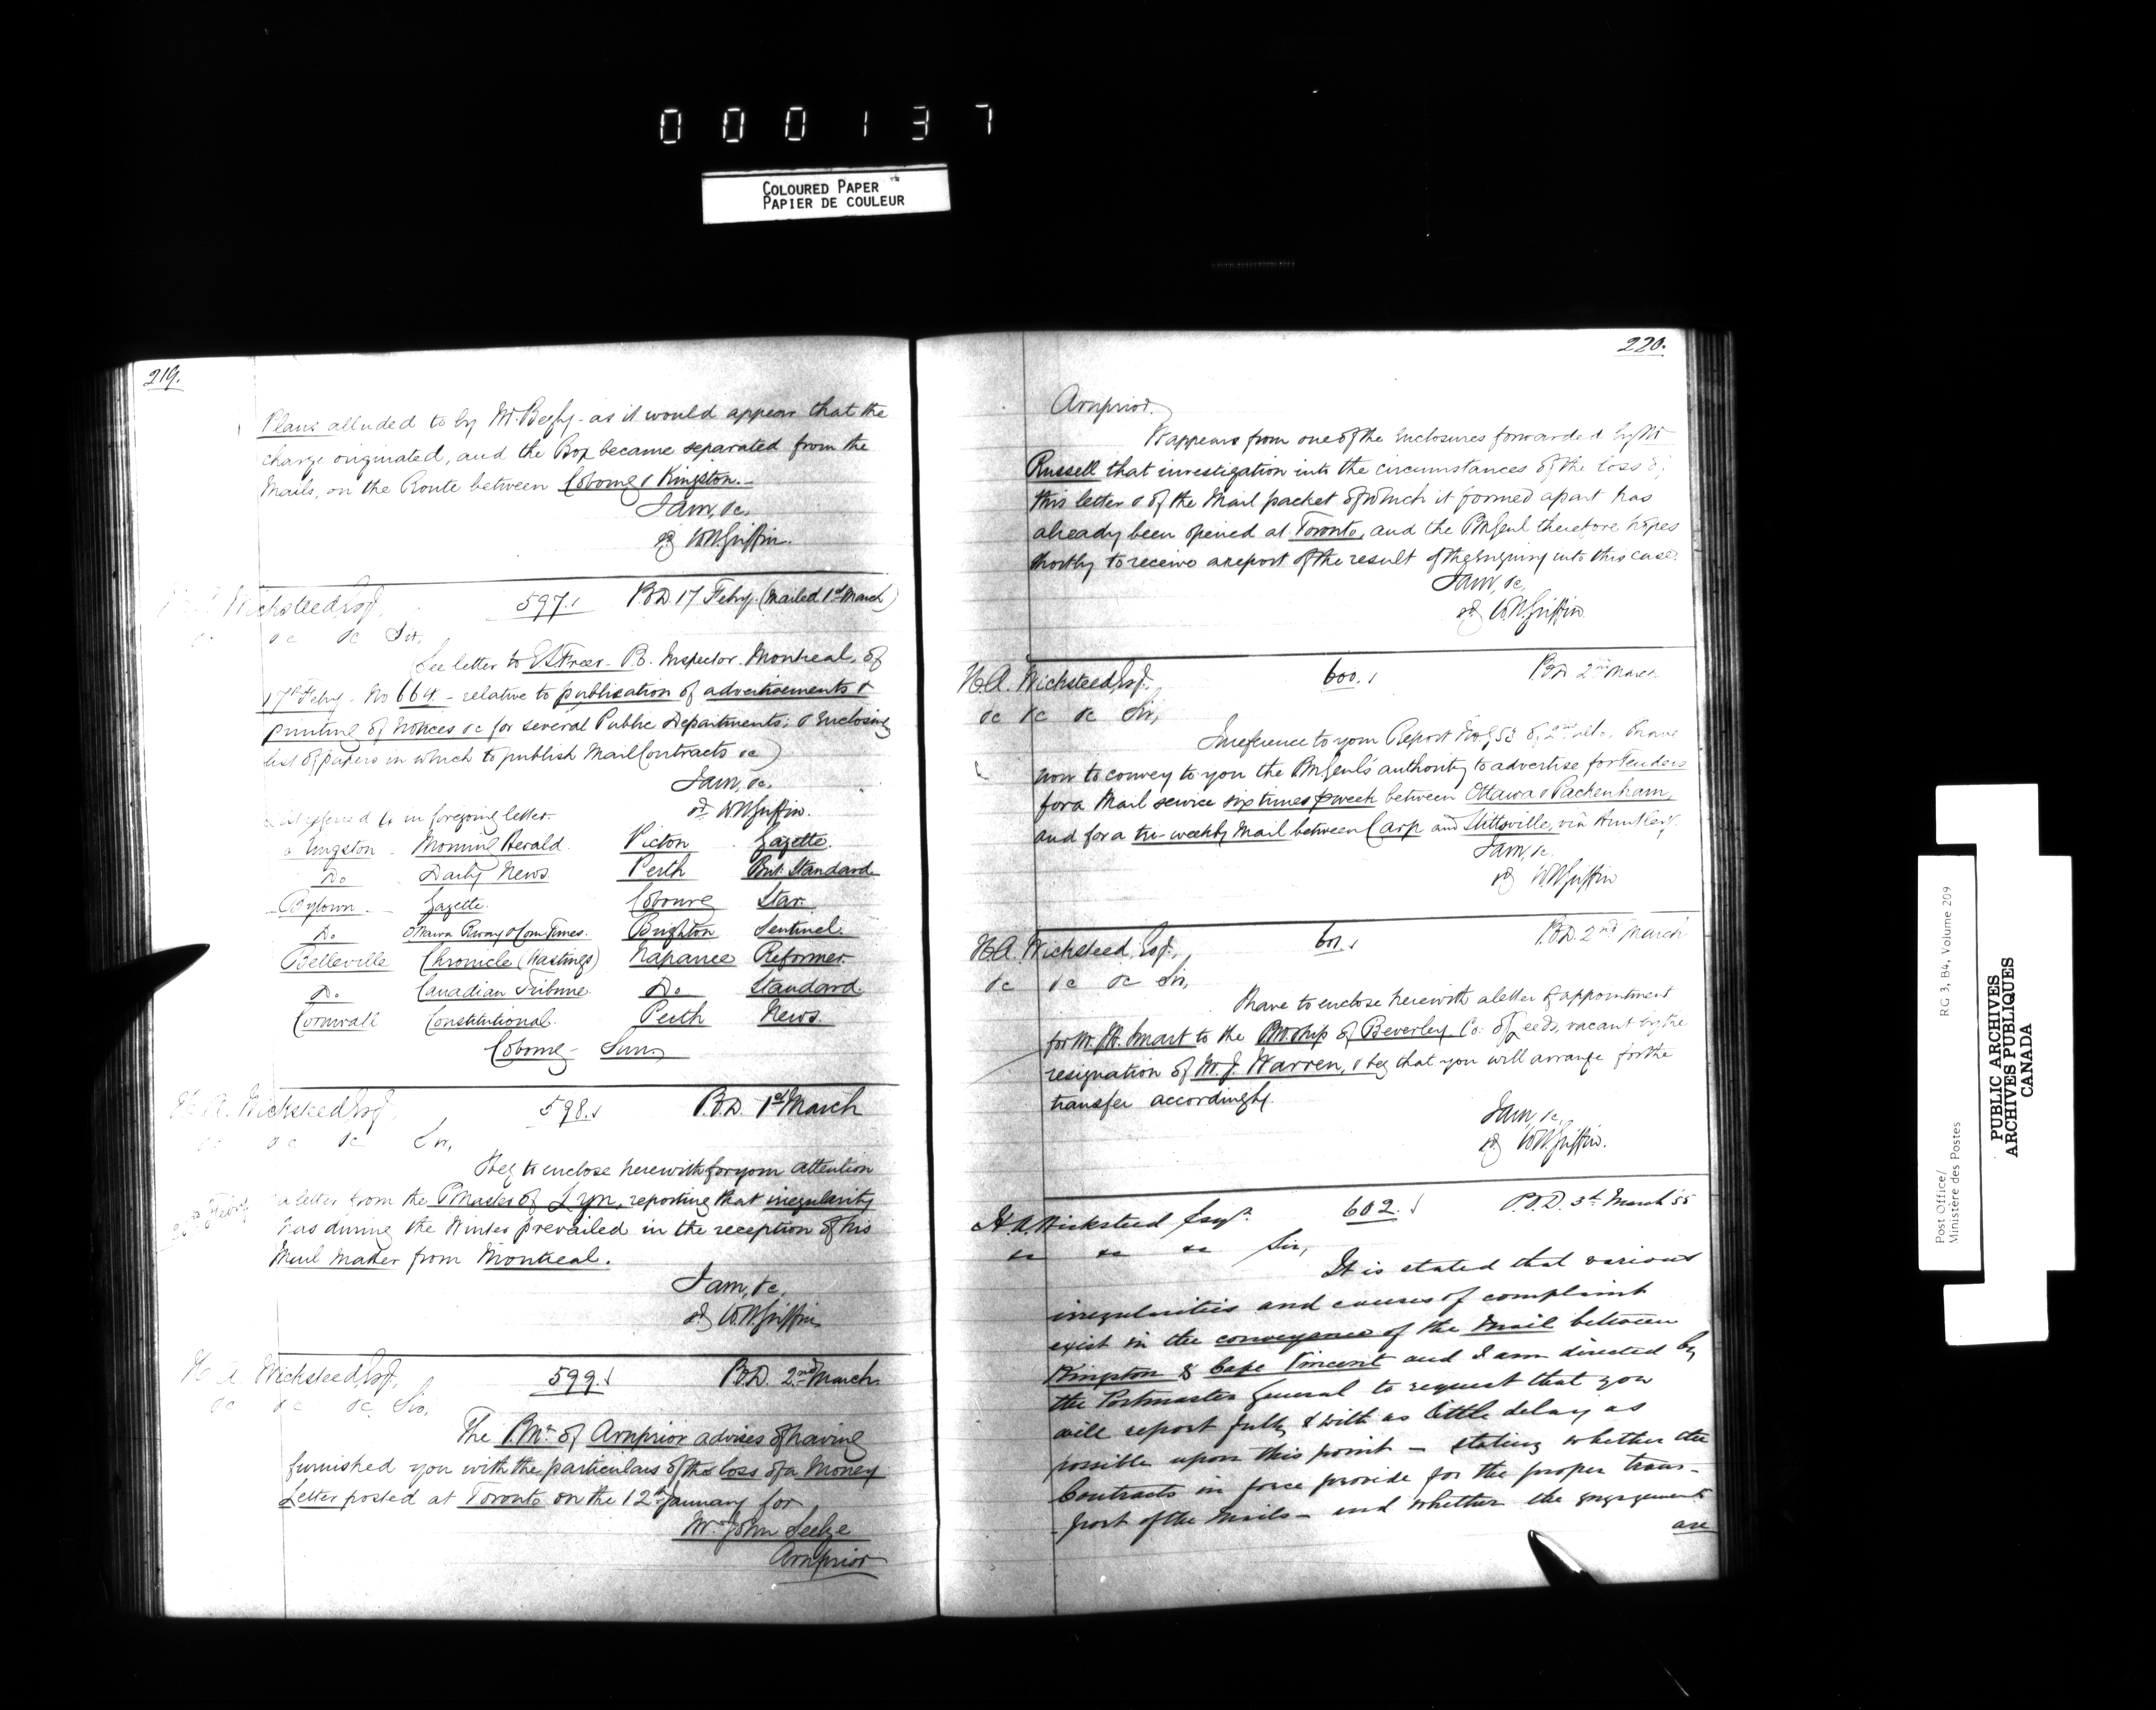 000137
COLOURED PAPER
PAPIER DE COULEUR
219.
Plans alluded to by Mr. as it would appear that the
charge originated, and the Box became separated from the
Mails, on the Route between Cobourg & Kingston.-
I am, &c.
sd W.H. Griffin.
Wicksteed, Esq. 597. P.O.D. 17 Feby. (Mailed 1st March)
&c &c Sir,
(See letter to E.S. Freer - P.O. Inspector. Montreal, of
17th Feby - No 664 - relative to publication of advertisements &
printing of Notices &c for several Public Departments; & Enclosing
list of papers in which to publish Mail Contracts &c)
I am, &c.
sd W.H. Griffin.
List referred to in foregoing letter.
Kingston - Morning Herald. Picton Gazette.
Do Daily News Perth Brit. Standard
Bytown - Gazette. Cobourg Star.
Do Ottawa Railway & Com Times. Brighton Sentinel.
Belleville Chronicle (Hastings) Napanee Reformer.
Do Canadian Tribune. Do. Standard
Cornwall Constitutional. Perth News.
Cobourg - Sun.
H.A. Wicksteed, Esq. 598. P.O.D. 1st March
&c &c &c Sir,
I beg to enclose herewith for your attention
a letter from the P Master of Lyn, reporting that irregularity
Feby
has during the Winter prevailed in the reception of his
Mail Matter from Montreal.
I am, &c.
sd W.H. Griffin
H.A. Wicksteed, Esq. 599. P.O.D. 2nd March.
&c &c &c Sir,
The P.Mr. of Arnprior advises of having
furnished you with the particulars of the loss of a Money
Letter posted at Toronto on the 12th January for
Mr John
Arnprior
220.
Arnprior.
It appears from one of the Enclosures forwarded by Mr
Russell that investigation into the circumstances of the loss of
this letter & of the Mail packet of which it formed a part has
already been opened at Toronto, and the P.M. Genl therefore hopes
shortly to receive a report of the result of the Enquiry into this case.
I am, &c,
sd W.H. Griffin.
H.A. Wicksteed, Esq. 600. P.O.D. 2nd March
&c &c &c Sir,
In reference to your Report No 853 of 2nd ulto, I have
now to convey to you the P.M. Genl's authority to advertise for Tenders
for a Mail service six times p week between Ottawa & Packenham,
and for a tri-weekly Mail between Carp and Stittsville, via Huntley.
I am, &c.
sd W.H. Griffin
H.A. Wicksteed, Esq., 601. P.O.D. 2nd March
&c &c &c Sir,
I have to enclose herewith a letter of appointment
for Mr. Smart to the P.M. ship of Beverley Co. of Leeds, vacant by the
resignation of Mr. J. Warren, & beg that you will arrange for the
transfer accordingly.
I am, &c,
sd W.H. Griffin.
H.A. Wicksteed Esqr. 602. P.O.D. 3d March 55
&c &c &c Sir,
It is stated that various
irregularities and causes of complaint
exist in the conveyance of the Mail between
Kingston & Cape Vincent and I am directed by
the Postmaster General to request that you
will report fully & with as little delay as
possible upon this point - stating whether the
Contracts in force provide for the proper trans-
port of the Mails - and whether the engagements
are
Post Office/
Ministère des Postes
RG 3, B4, Volume 209
PUBLIC ARCHIVES
ARCHIVES PUBLIQUES
CANADA